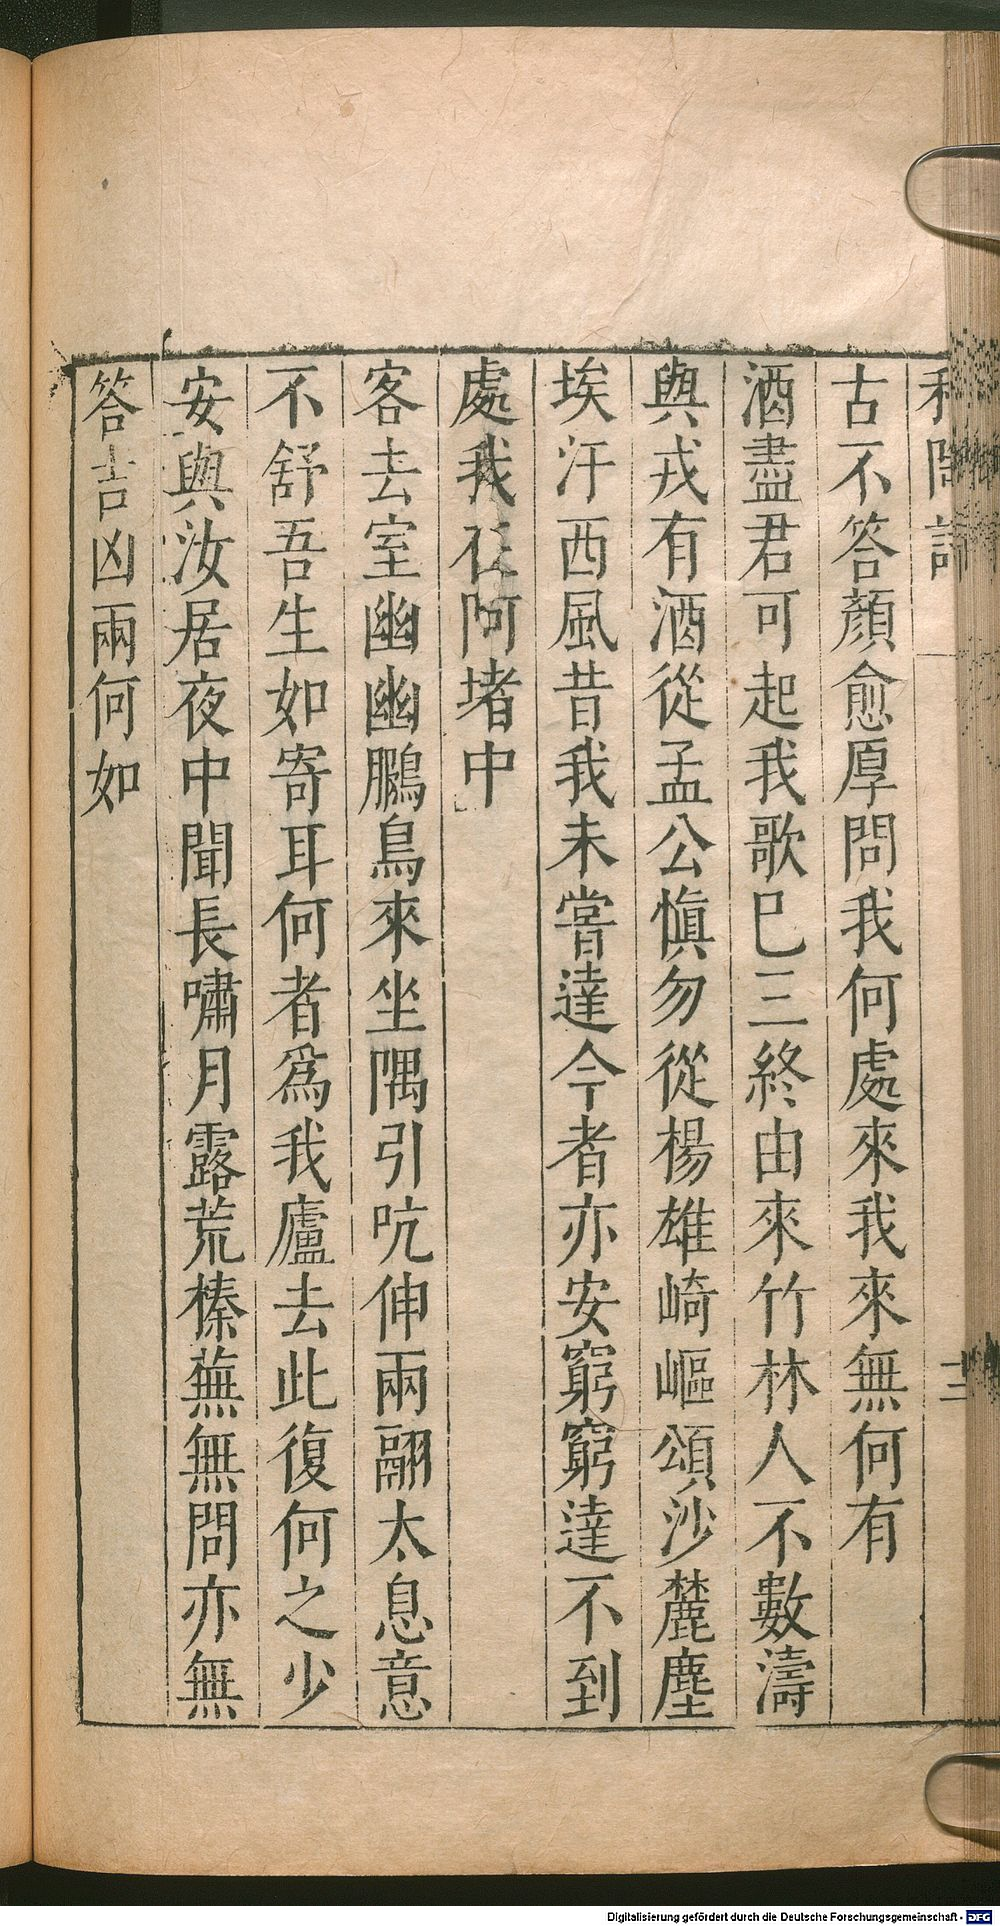 和陶詩
古不答顏愈厚問我何處來我來無何有
酒盡君可起我歌巳三終由來竹林人不數濤
與戎有酒從孟公慎勿從楊雄崎嶇頌沙麓塵
埃汗西風昔我未嘗達今者亦安窮窮達不到
處我在阿堵中
客去室幽幽鵩鳥來坐隅引吭伸兩翮太息意
不舒吾生如寄耳何者為我廬去此復何之少
安與汝居夜中聞長嘯月露荒榛蕪無問亦無
答吉凶兩何如
Digitalisierung gefördert durch die Deutsche Forschungsgemeinschaft - DFG